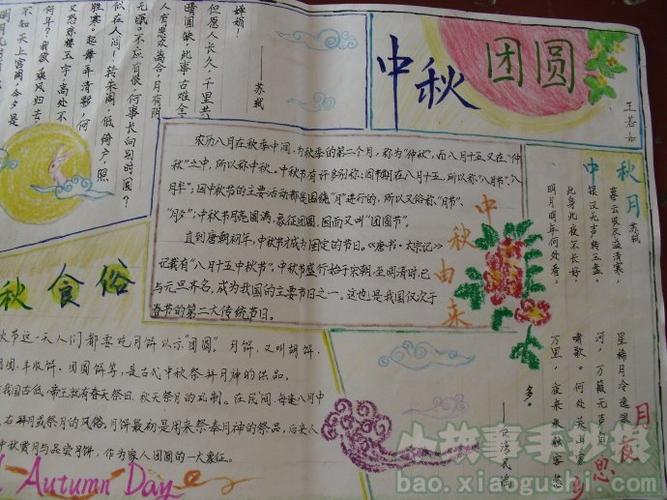 中秋 团圆
王若
婵娟!
但愿人长久,千里共
晴圆缺,此事古难全
人有悲欢离合,月有阴
无眠。不应有恨,何事长向别时圆?
似在人间!转朱阁,低绮户,照
胜寒。起舞弄清影,何
又恐琼楼玉宇,高处不
何年?我欲乘风归去,
不知天上宫阙,今夕是
——苏轼
农历八月在秋季中间,为秋季的第二个月,称为“仲秋”,而八月十五又在“仲
秋”之中,所以称中秋。中秋节有许多别称:因节期在八月十五,所以称“八月节”、“八
月半”;因中秋节的主要活动都是围绕“月”进行的,所以又俗称“月节”、
“月夕”;中秋节月亮圆满,象征团圆,因而又叫“团圆节”。
直到唐朝初年,中秋节才成为固定的节日。《唐书·太宗记》
记载有“八月十五中秋节”。中秋节盛行始于宋朝,至明清时,已
与元旦齐名,成为我国的主要节日之一。这也是我国仅次于
春节的第二大传统节日。
中秋由来
中秋月
苏轼
暮云收尽溢清寒,
银汉无声转玉盘。
此身此夜不长好,
明月明年何处看。
秋食俗
秋节这一天人们都要吃月饼以示“团圆”。月饼,又叫胡饼、
团、丰收饼、团圆饼等,是古代中秋祭拜月神的供品。
我国古代,帝王就有春天祭日,秋天祭月的礼制。在民间,每逢八月中
有拜月或祭月的风俗。月饼最初是用来祭奉月神的祭品,后来人
中秋赏月与品尝月饼,作为家人团圆的一大象征。
Autumn Day
月夜思
星稀月冷逸银
河,万籁无声自
啸歌。何处关山家
万里,夜来枨触客愁
多。
小故事手抄报
bao.xiaogushi.com